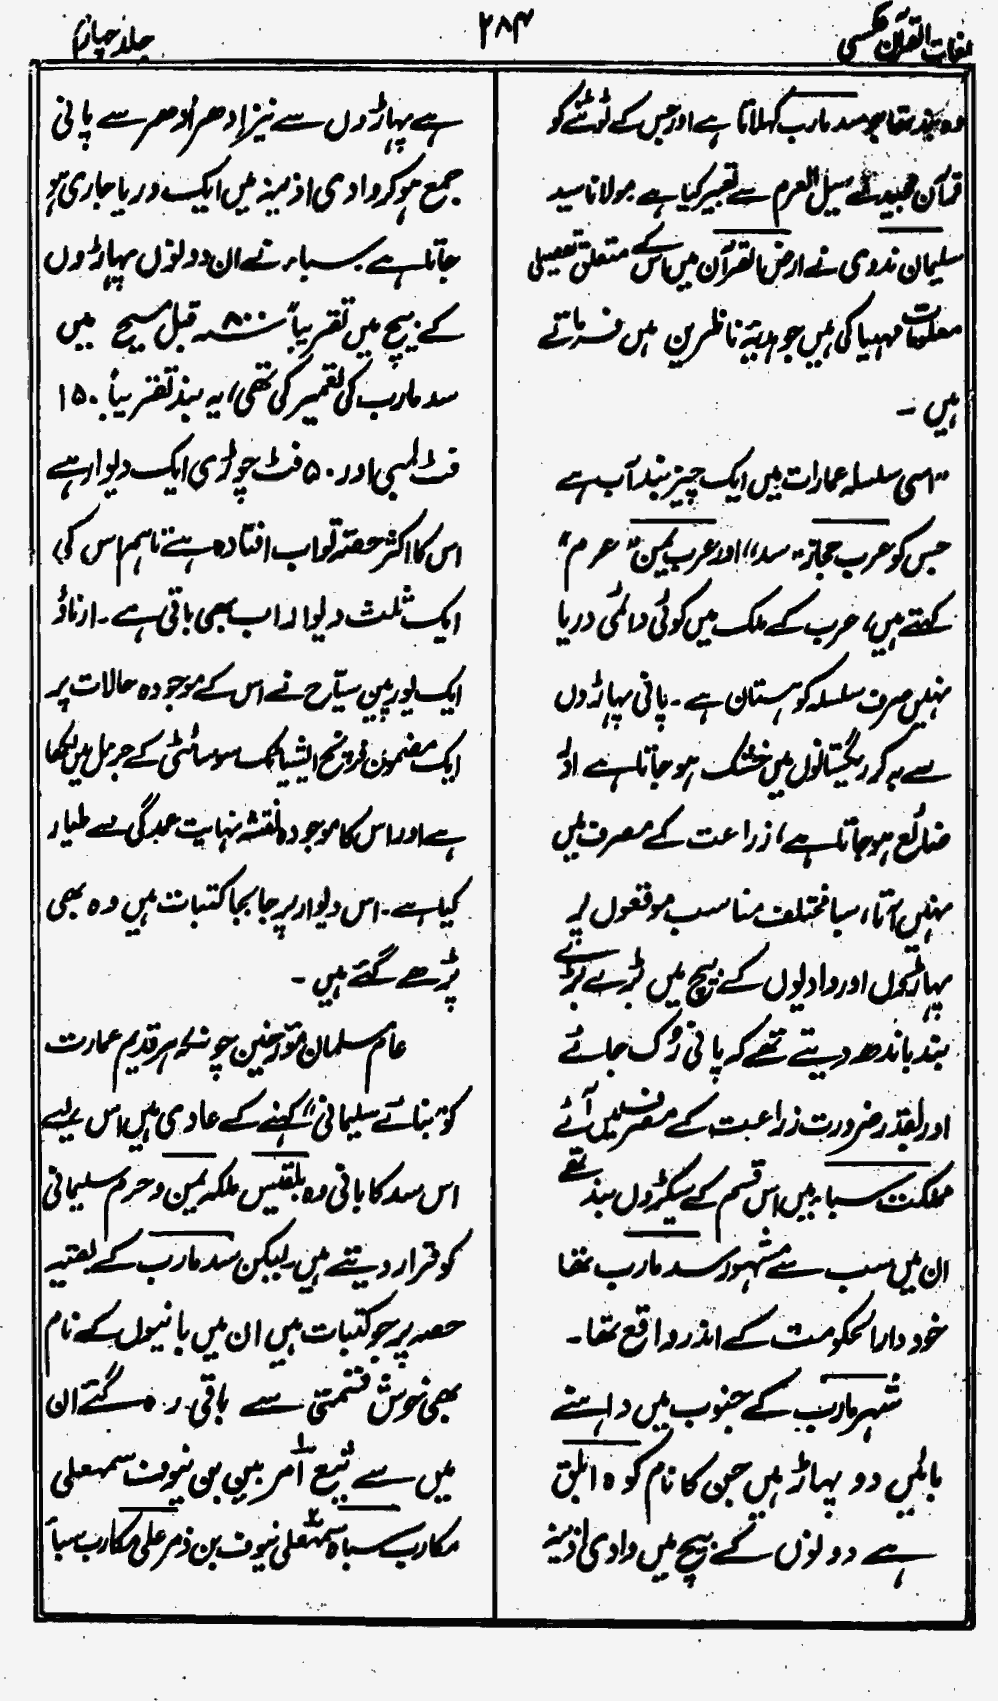 لغات القرآن عکسی
۲۸۴
جلد چہارم
وہ بند تھا جو سد مارب کہلاتا ہے اور جس کے ٹوٹنے کو
قرآن مجید نے سیل العرم سے تعبیر کیا ہے مولانا سید
سلیمان ندوی نے ارض القرآن میں اس کے متعلق تفصیلی
معلومات مہیا کی ہیں جو ہدیۂ ناظرین ہیں فرماتے
ہیں ۔
"اسی سلسلہ عمارات میں ایک چیز بند آب ہے
جس کو عرب حجاز "سد" اور عرب یمن "عرم"
کہتے ہیں، عرب کے ملک میں کوئی دائمی دریا
نہیں صرف سلسلہ کوہستان ہے ۔ پانی پہاڑوں
سے بہ کر ریگستانوں میں خشک ہو جاتا ہے اور
ضائع ہو جاتا ہے، زراعت کے مصرف میں
نہیں آتا، سبا مختلف مناسب موقعوں پر
پہاڑوں اور وادیوں کے بیچ میں بڑے بڑے
بند باندھ دیتے تھے کہ پانی رُک جائے
اور بقدر ضرورت زراعت کے مصرف میں آئے
مملکت سبا میں اس قسم کے سیکڑوں بند تھے
ان میں سب سے مشہور سد مارب تھا
خود دارالحکومت کے اندر واقع تھا ۔
شہر مارب کے جنوب میں داہنے
بائیں دو پہاڑ ہیں جن کا نام کوہ ابلق
ہے دونوں کے بیچ میں وادی اذینہ
ہے پہاڑوں سے نیز ادھر اُدھر سے پانی
جمع ہو کر وادی اذینہ میں ایک دریا جاری ہو
جاتا ہے سباء نے ان دونوں پہاڑوں
کے بیچ میں تقریباً ۸۰۰ قبل مسیح میں
سد مارب کی تعمیر کی تھی، یہ بند تقریباً ۱۵۰
فٹ لمبی اور ۵۰ فٹ چوڑی ایک دیوار ہے
اس کا اکثر حصہ تو اب افتادہ ہے تاہم اس کی
ایک ثلث دیوار اب بھی باقی ہے ۔ ارناؤ
ایک یورپین سیاح نے اس کے موجودہ حالات پر
ایک مضمون فرنچ ایشیاٹک سوسائٹی کے جرنل میں لکھا
ہے اور اس کا موجودہ نقشہ نہایت عمدگی سے طیار
کیا ہے ۔ اس دیوار پر جا بجا کتبات ہیں وہ بھی
پڑھے گئے ہیں ۔
عام مسلمان مؤرخین چونکہ ہر قدیم عمارت
کو "بنائے سلیمانی" کہنے کے عادی ہیں اس لیے
اس سد کا بانی وہ بلقیس ملکہ یمن و حرم سلیمانی
کو قرار دیتے ہیں لیکن سد مارب کے بقیہ
حصہ پر جو کتبات ہیں ان میں بانیوں کے نام
بھی خوش قسمتی سے باقی رہ گئے ان
میں سے یثیع امر بین بن سمہعلی
مکارب سبا، سمہعلی بن ذمر علی مکارب سبا